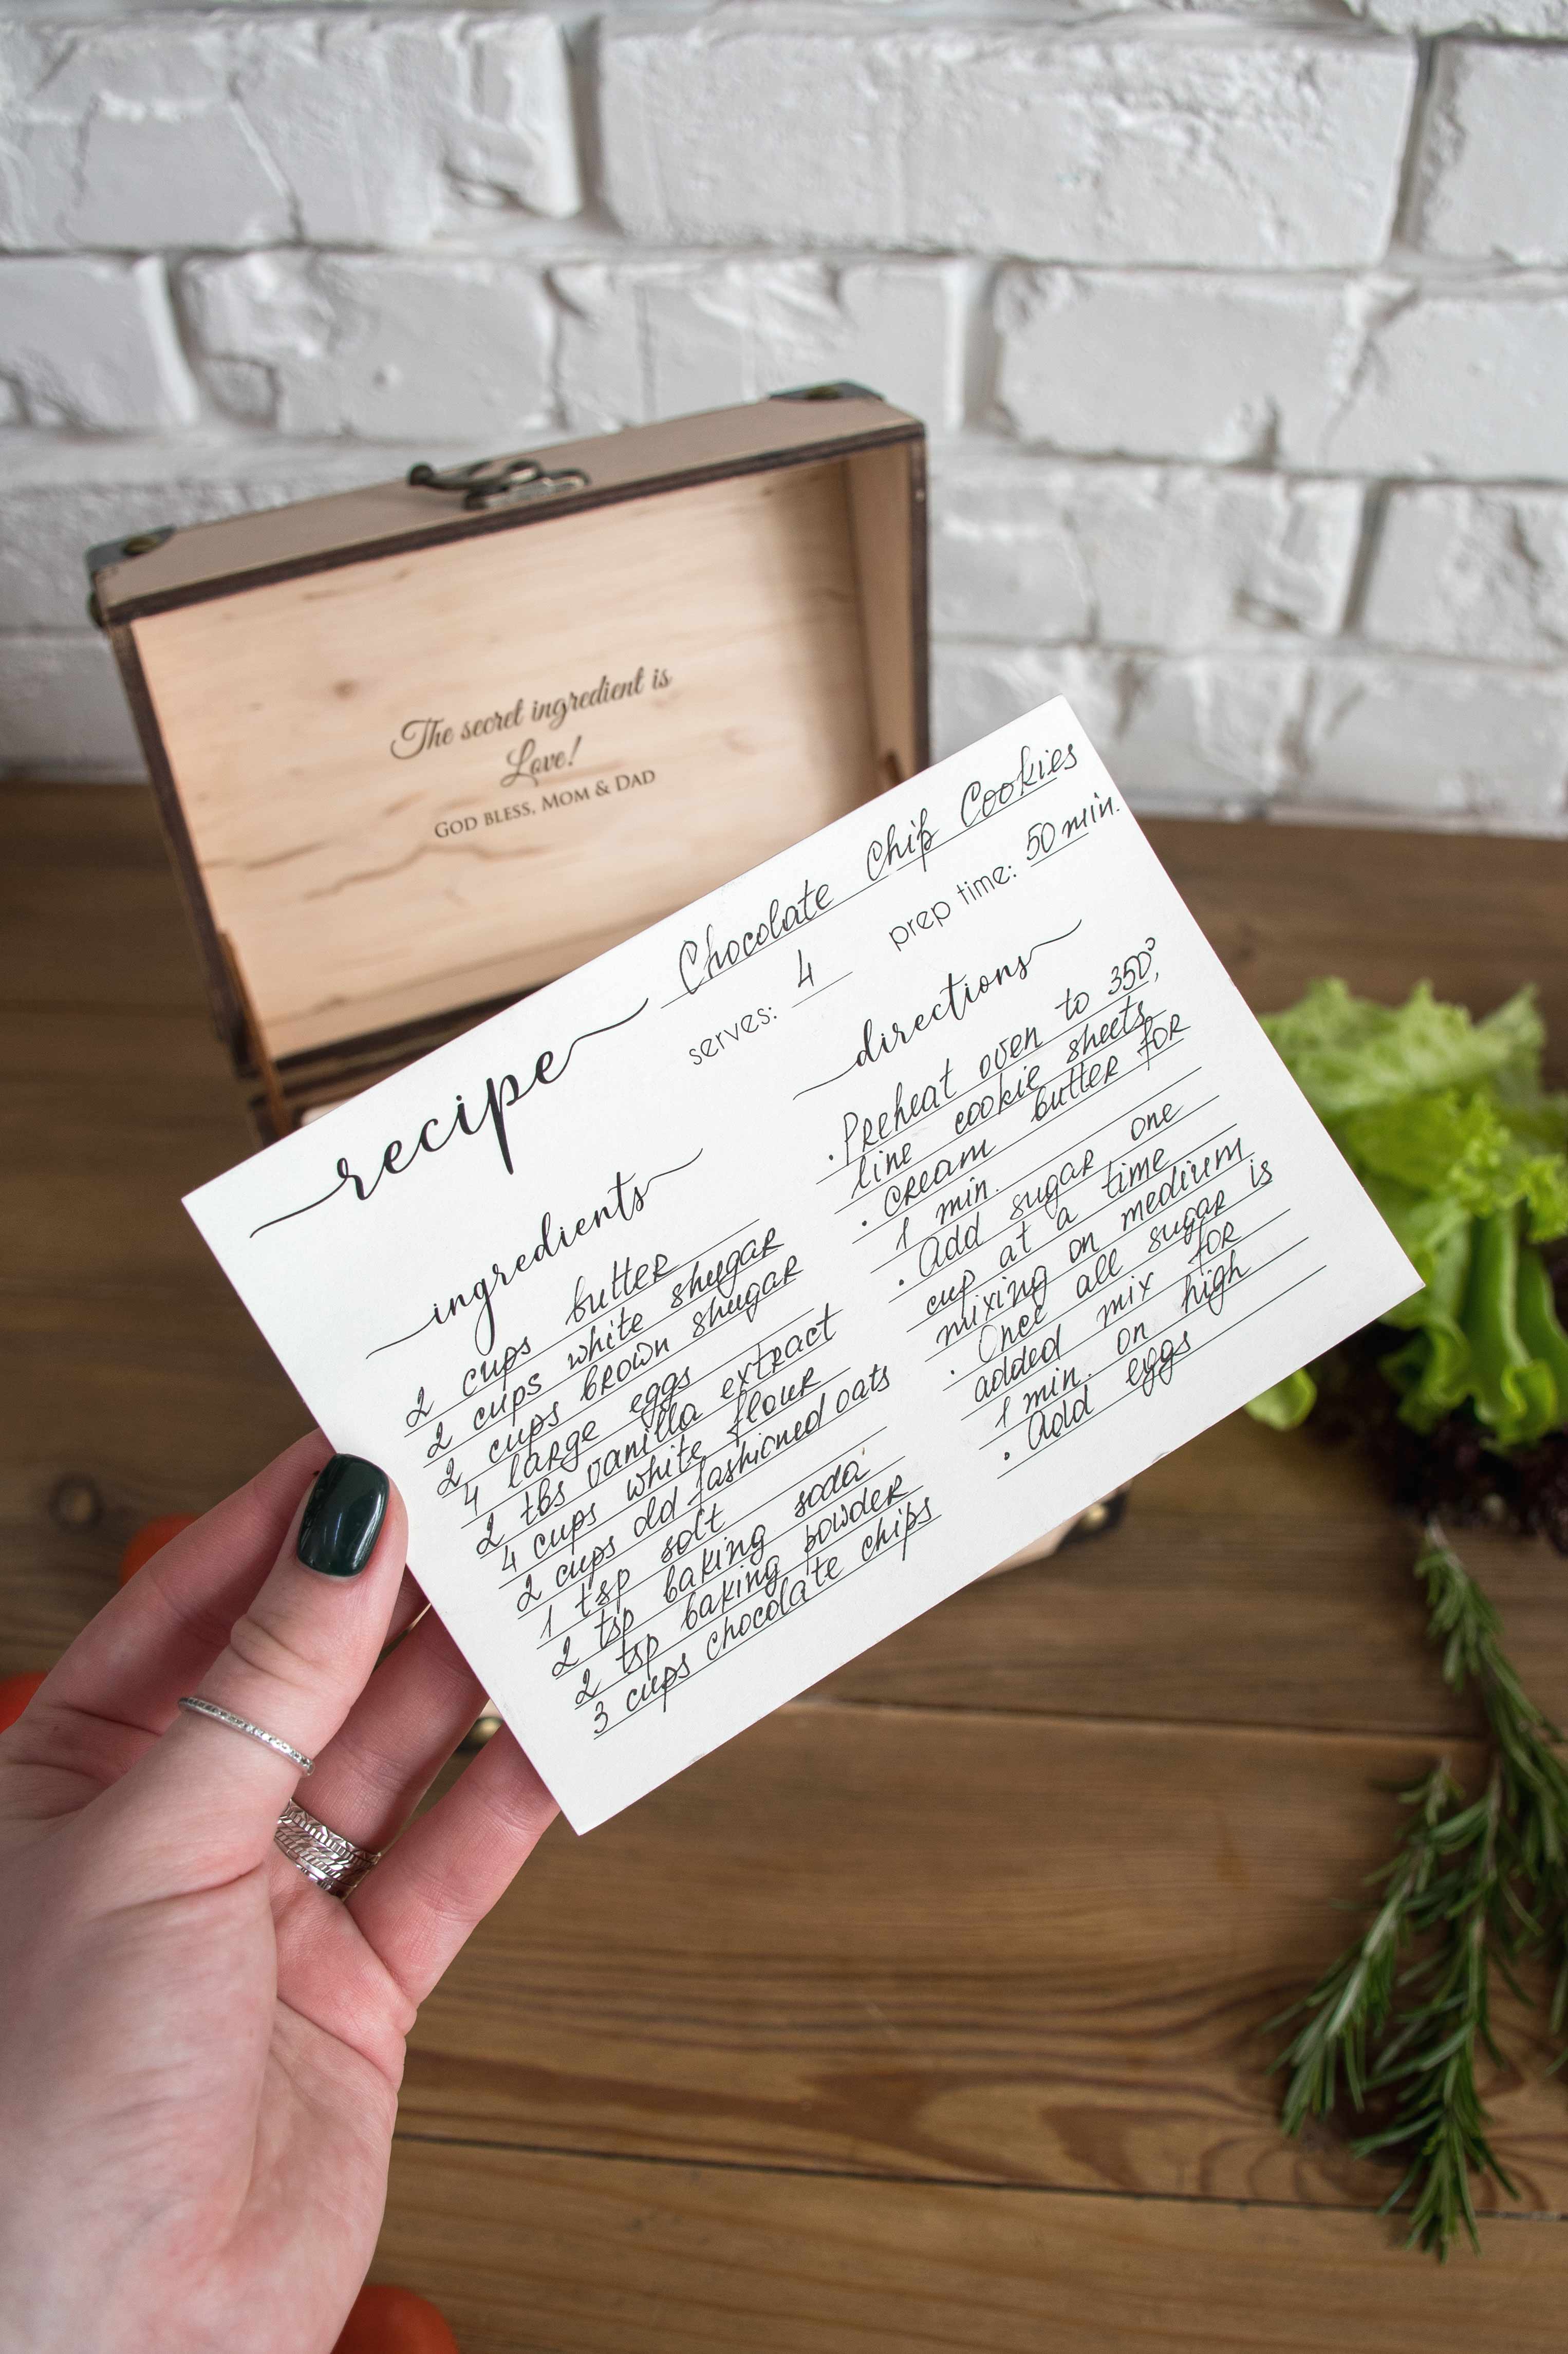 The secret ingredient is
Love!
GOD BLESS, MOM & DAD
recipe Chocolate Chip Cookies
serves: 4 prep time: 50 min.
ingredients
2 cups butter
2 cups white shugar
2 cups brown shugar
4 large eggs
2 tbs vanilla extract
4 cups white flour
2 cups old fashioned oats
1 tsp solt
2 tsp baking soda
2 tsp baking powder
3 cups chocolate chips
directions
. Preheat oven to 350°,
line cookie sheets.
. cream butter for
1 min.
. Add sugar one
cup at a time
mixing on medium
. Once all sugar is
added mix for
1 min. on high
. Add eggs